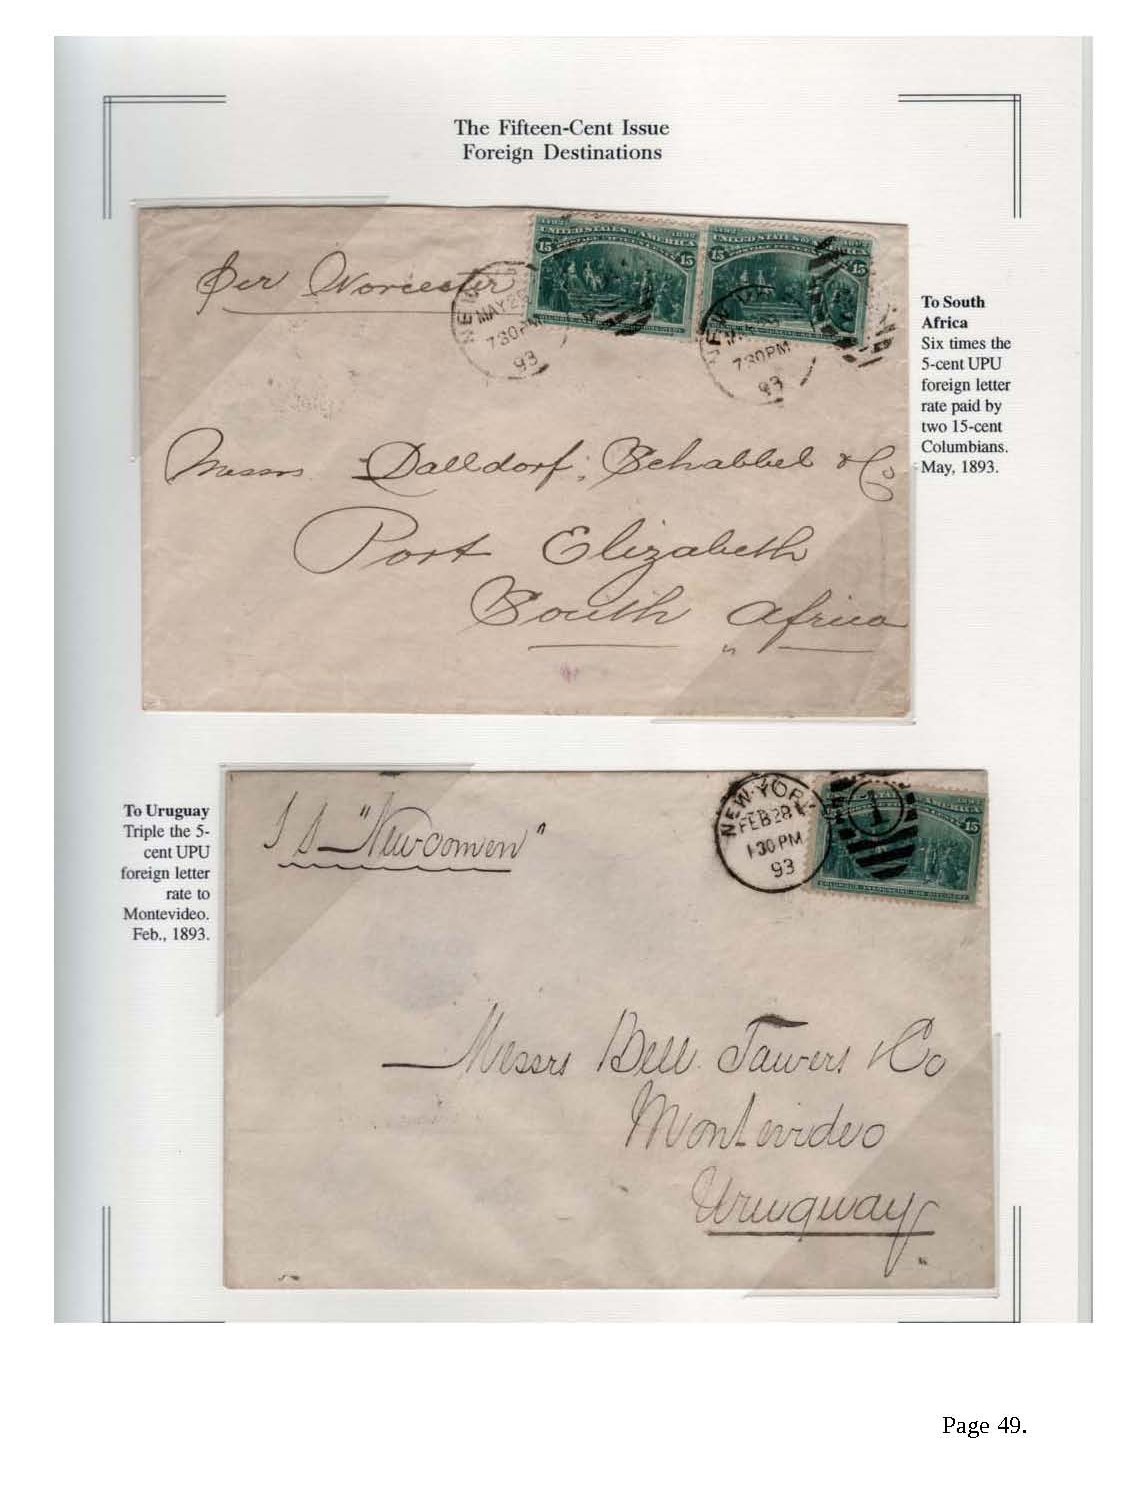 The Fifteen-Cent Issue
Foreign Destinations
per Worcester
1492 1892
UNITED STATES OF AMERICA
15 15
UNITED STATES OF AMERICA
15 15
NEW
MAY 26
7 30 PM
93
NEW Y
7 30 PM
93
Messrs Dalldorf, Schabbel & Co
Port Elizabeth
South Africa
To South
Africa
Six times the
5-cent UPU
foreign letter
rate paid by
two 15-cent
Columbians.
May, 1893.
To Uruguay
Triple the 5-
cent UPU
foreign letter
rate to
Montevideo.
Feb., 1893.
S S "Newcomen"
NEW YORK
FEB 28
1 30 PM
93
1
15
COLUMBUS ANNOUNCING HIS DISCOVERY
Messrs Bell Tawers & Co
Montevideo
Uruguay
Page 49.